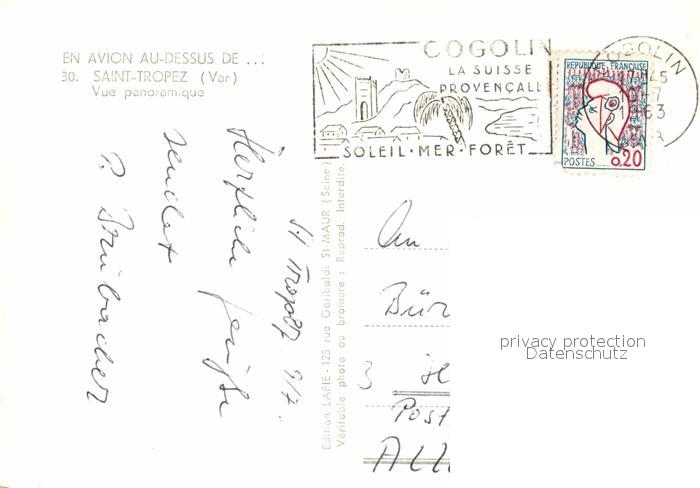 EN AVION AU-DESSUS DE ...
30. SAINT-TROPEZ (Var)
Vue panoramique
COGOLIN
LA SUISSE
PROVENÇALE
SOLEIL·MER·FORÊT
COGOLIN
45
1963
VAR
REPUBLIQUE FRANÇAISE
POSTES
0,20
St Tropez 9/7.
Herzliche Grüße
sendet
P. Brübacher
Edition LAPIE - 125 rue Garibaldi St-MAUR (Seine)
Véritable photo au bromure : Reprod. Interdite.
An
Bür
3
Post
ALL
privacy protection
Datenschutz